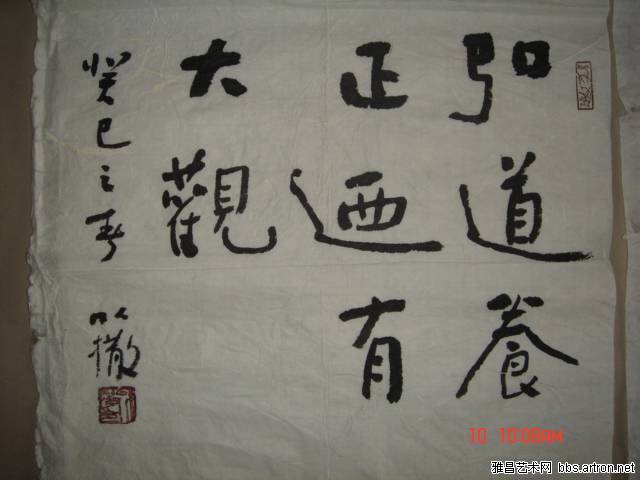 弘道養
正迺有
大觀
癸巳之春
以撒
10 10:08AM
雅昌艺术网 bbs.artron.net